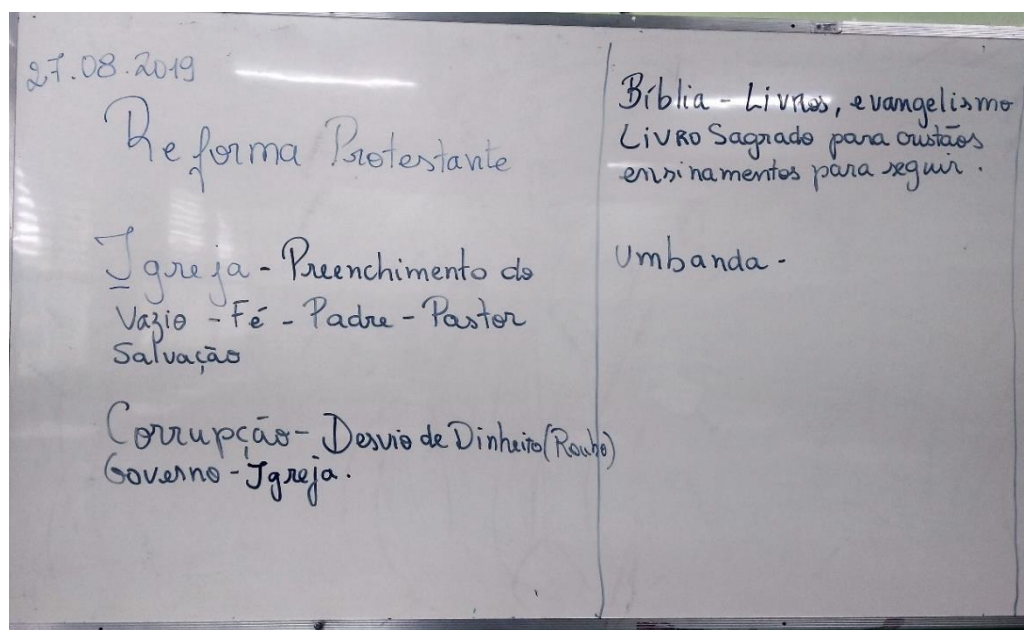 27.08.2019
Reforma Protestante
Igreja - Preenchimento do
Vazio - Fé - Padre - Pastor
Salvação
Corrupção - Desvio de Dinheiro (Roubo)
Governo - Igreja.
Bíblia - Livros, evangelismo
Livro Sagrado para cristãos
ensinamentos para seguir.
Umbanda -